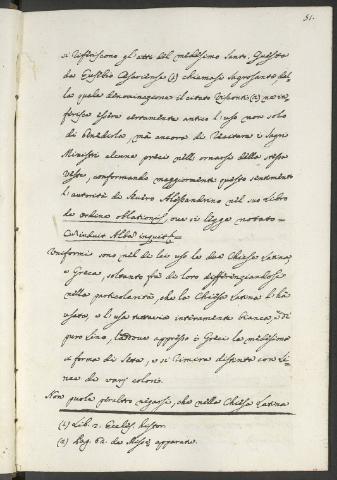 51.
si riferiscono gl'atti del medesimo Santo. Questa
da Eusebio Cesariense (1) chiamasi Sagrosanta, dal-
la quale denominazione il citato Visconti (2) ne in-
ferisce essere certamente antico l'uso non solo
di benedirla, mà ancora di recitare i Sagri
Ministri alcune preci nell'ornarsi della stessa
veste, confermando maggiormente questo sentimento
l'autorità di Alessandrino nel suo libro
de ordine oblationis, ove si legge notato =
Cum induit Albâ inquit &
Uniformi sono nel di lei uso le due Chiese Latina,
e Greca, soltanto frà di loro differenziandosi
nella particolarità, che la Chiesa Latina l'hà
usata, e l'usa tuttavia intieramente bianca, e di
puro Lino, laddove appresso i Greci la medesima
è forma di Seta, e si rimira distinta con li-
nee di varj colori.
Non puole peraltro negarsi, che nella Chiesa Latina
(1) Lib. 2. Eccles. histor.
(2) Pag. 62. de Missæ apparatu.